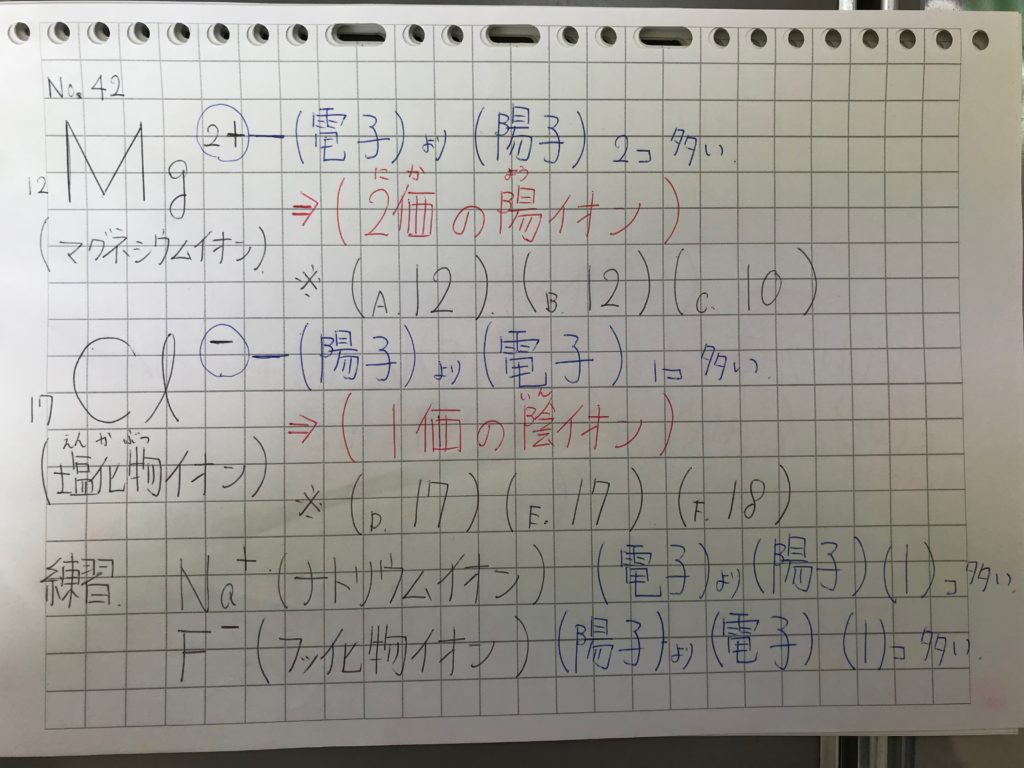 No. 42
Mg 2+ ー (電子) より (陽子) 2コ 多い.
12
にか よう
⇒ (2価の陽イオン)
(マグネシウムイオン)
※ (A. 12) (B. 12) (C. 10)
Cl － ー (陽子) より (電子) 1コ 多い.
17
いん
⇒ (1価の陰イオン)
えんかぶつ
(塩化物イオン)
※ (D. 17) (E. 17) (F. 18)
練習. Na+ (ナトリウムイオン) (電子)より(陽子)(1)コ多い.
F－ (フッ化物イオン) (陽子)より(電子)(1)コ多い.